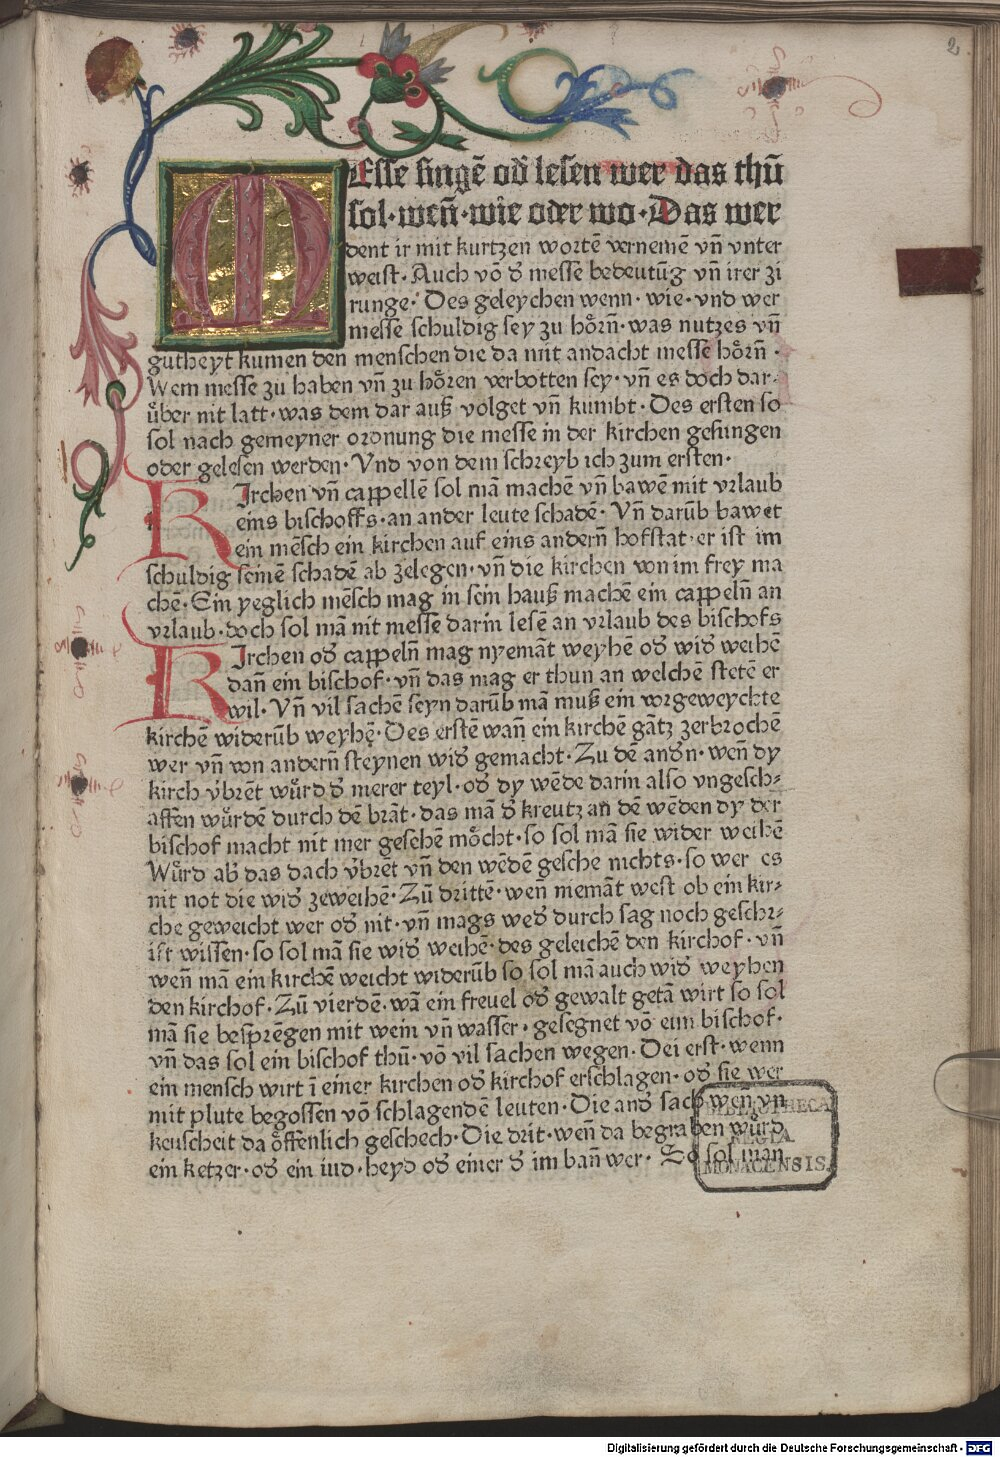 2
MEsse singē od̄ lesen wer das thū
sol·wen̄·wie oder wo·Das wer
dent ir mit kurtzen wortē vernemē vn̄ vnter
weist·Auch vō d̄ messe bedeutūg vn̄ irer zi
runge·Des geleychen wenn·wie·vnd wer
messe schuldig sey zu hoͤrn̄·was nutzes vn̄
gutheyt kumen den menschen die da mit andacht messe hoͤrn̄·
Wem messe zu haben vn̄ zu hoͤren verbotten sey·vn̄ es doch dar⸗
uͤber nit latt·was dem dar auß volget vn̄ kumbt·Des ersten so
sol nach gemeyner ordnung die messe in der kirchen gesungen
oder gelesen werden·Vnd von dem schreyb ich zum ersten·
KIrchen vn̄ cappellē sol mā machē vn̄ bawē mit vrlaub
eins bischoffs·an ander leute schadē·Vn̄ darūb bawet
ein mēsch ein kirchen auf eins andern̄ hofstat·er ist im
schuldig seinē schadē ab zelegen·vn̄ die kirchen von im frey ma
chē·Ein yeglich mēsch mag in sein hauß machē ein cappeln̄ an
vrlaub·doch sol mā nit messe darin lesē an vrlaub des bischofs
KIrchen od̄ cappeln̄ mag nyemāt weyhē od̄ wid̄ weihē
dan̄ ein bischof·vn̄ das mag er thun an welchē stetē er
wil·Vn̄ vil sachē seyn darūb mā muß ein vorgeweychte
kirchē widerūb weyhē·Des erstē wan̄ ein kirchē gātz zerbrochē
wer vn̄ von andern̄ steynen wid̄ gemacht·Zu dē and̄n·wen̄ dy
kirch v̄bret wuͤrd d̄ merer teyl·od̄ dy wēde darin also vngesch⸗
affen wuͤrdē durch dē brāt·das mā d̄ kreutz an dē wēden dy der
bischof macht nit mer gesehē moͤcht·so sol mā sie wider weihē
Wuͤrd ab̄ das dach v̄bret vn̄ den wēdē geschē nichts·so wer es
nit not die wid̄ zeweihē·Zū drittē·wen̄ niemāt west ob ein kir⸗
che geweicht wer od̄ nit·vn̄ mags wed̄ durch sag noch geschr⸗
ift wissen·so sol mā sie wid̄ weihē·des geleichē den kirchof·vn̄
wen̄ mā ein kirchē weicht widerūb so sol mā auch wid̄ weyhen
den kirchof·Zū vierdē·wā ein freuel od̄ gewalt getā wirt so sol
mā sie besprēgen mit wein vn̄ wasser·gesegnet vō eim bischof·
vn̄ das sol ein bischof thū·vō vil sachen wegen·Dei erst·wenn
ein mensch wirt ī einer kirchen od̄ kirchof erschlagen·od̄ sie wer
mit plute begossen vō schlagendē leuten·Die and̄ sach wen̄ vn
keuscheit da oͤffenlich geschech·Die drit·wen̄ da begraben wuͤrd
ein ketzer·od̄ ein iud·heyd od̄ einer d̄ im ban̄ wer·So sol man
BIBLIOTHECA
REGIA
MONACENSIS.
Digitalisierung gefördert durch die Deutsche Forschungsgemeinschaft - DFG